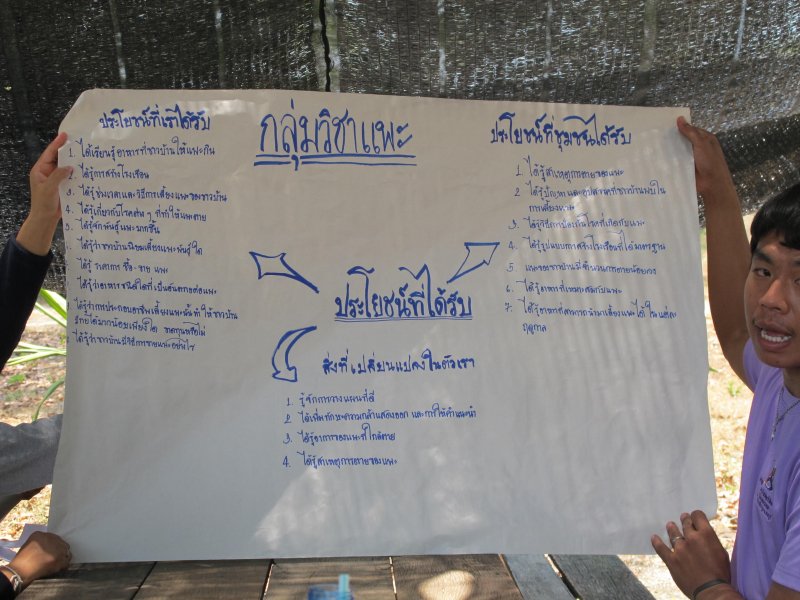 กลุ่มวิชาแพะ
ประโยชน์ที่เราได้รับ
1. ได้เรียนรู้อาหารที่ชาวบ้านให้แพะกิน
2. ได้รู้การสร้างโรงเรือน
3. ได้รู้ช่วงเวลาและวิธีการเลี้ยงแพะของชาวบ้าน
4. ได้รู้เกี่ยวกับโรคต่าง ๆ ที่ทำให้แพะตาย
ได้รู้จักพันธุ์แพะมากขึ้น
ได้รู้ว่าชาวบ้านนิยมเลี้ยงแพะพันธุ์ใด
ได้รู้ราคาการ ซื้อ-ขาย แพะ
ได้รู้ว่าอาหารชนิดใดที่เป็นอันตรายต่อแพะ
ได้รู้ว่าการประกอบอาชีพเลี้ยงแพะนั้นทำให้ชาวบ้าน
รายได้มากน้อยเพียงใด ขาดทุนหรือไม่
ได้รู้ว่าชาวบ้านมีวิธีการขายแพะอย่างไร
ประโยชน์ที่ได้รับ
สิ่งที่เปลี่ยนแปลงในตัวเรา
1. รู้จักการวางแผนที่ดี
2. ได้เพิ่มทักษะความกล้าแสดงออก และการให้คำแนะนำ
3. ได้รู้อาการของแพะที่ใกล้ตาย
4. ได้รู้สาเหตุการตายของแพะ
ประโยชน์ที่ชุมชนได้รับ
1. ได้รู้สาเหตุการตายของแพะ
2. ได้รู้ปัญหาและอุปสรรคที่ชาวบ้านพบใน
การเลี้ยงแพะ
3. ได้รู้วิธีการป้องกันโรคที่เกิดกับแพะ
4. ได้รู้รูปแบบการสร้างโรงเรือนที่ได้มาตรฐาน
5. แพะของชาวบ้านมีจำนวนการตายน้อยลง
6. ได้รู้อาหารที่เหมาะสมกับแพะ
7. ได้รู้อาหารที่สามารถนำมาเลี้ยงแพะได้ในแต่ละ
ฤดูกาล